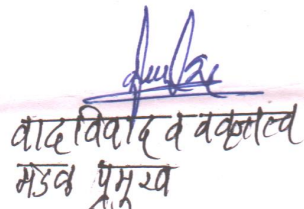 वादविवाद व वक्तृत्व
मंडळ प्रमुख